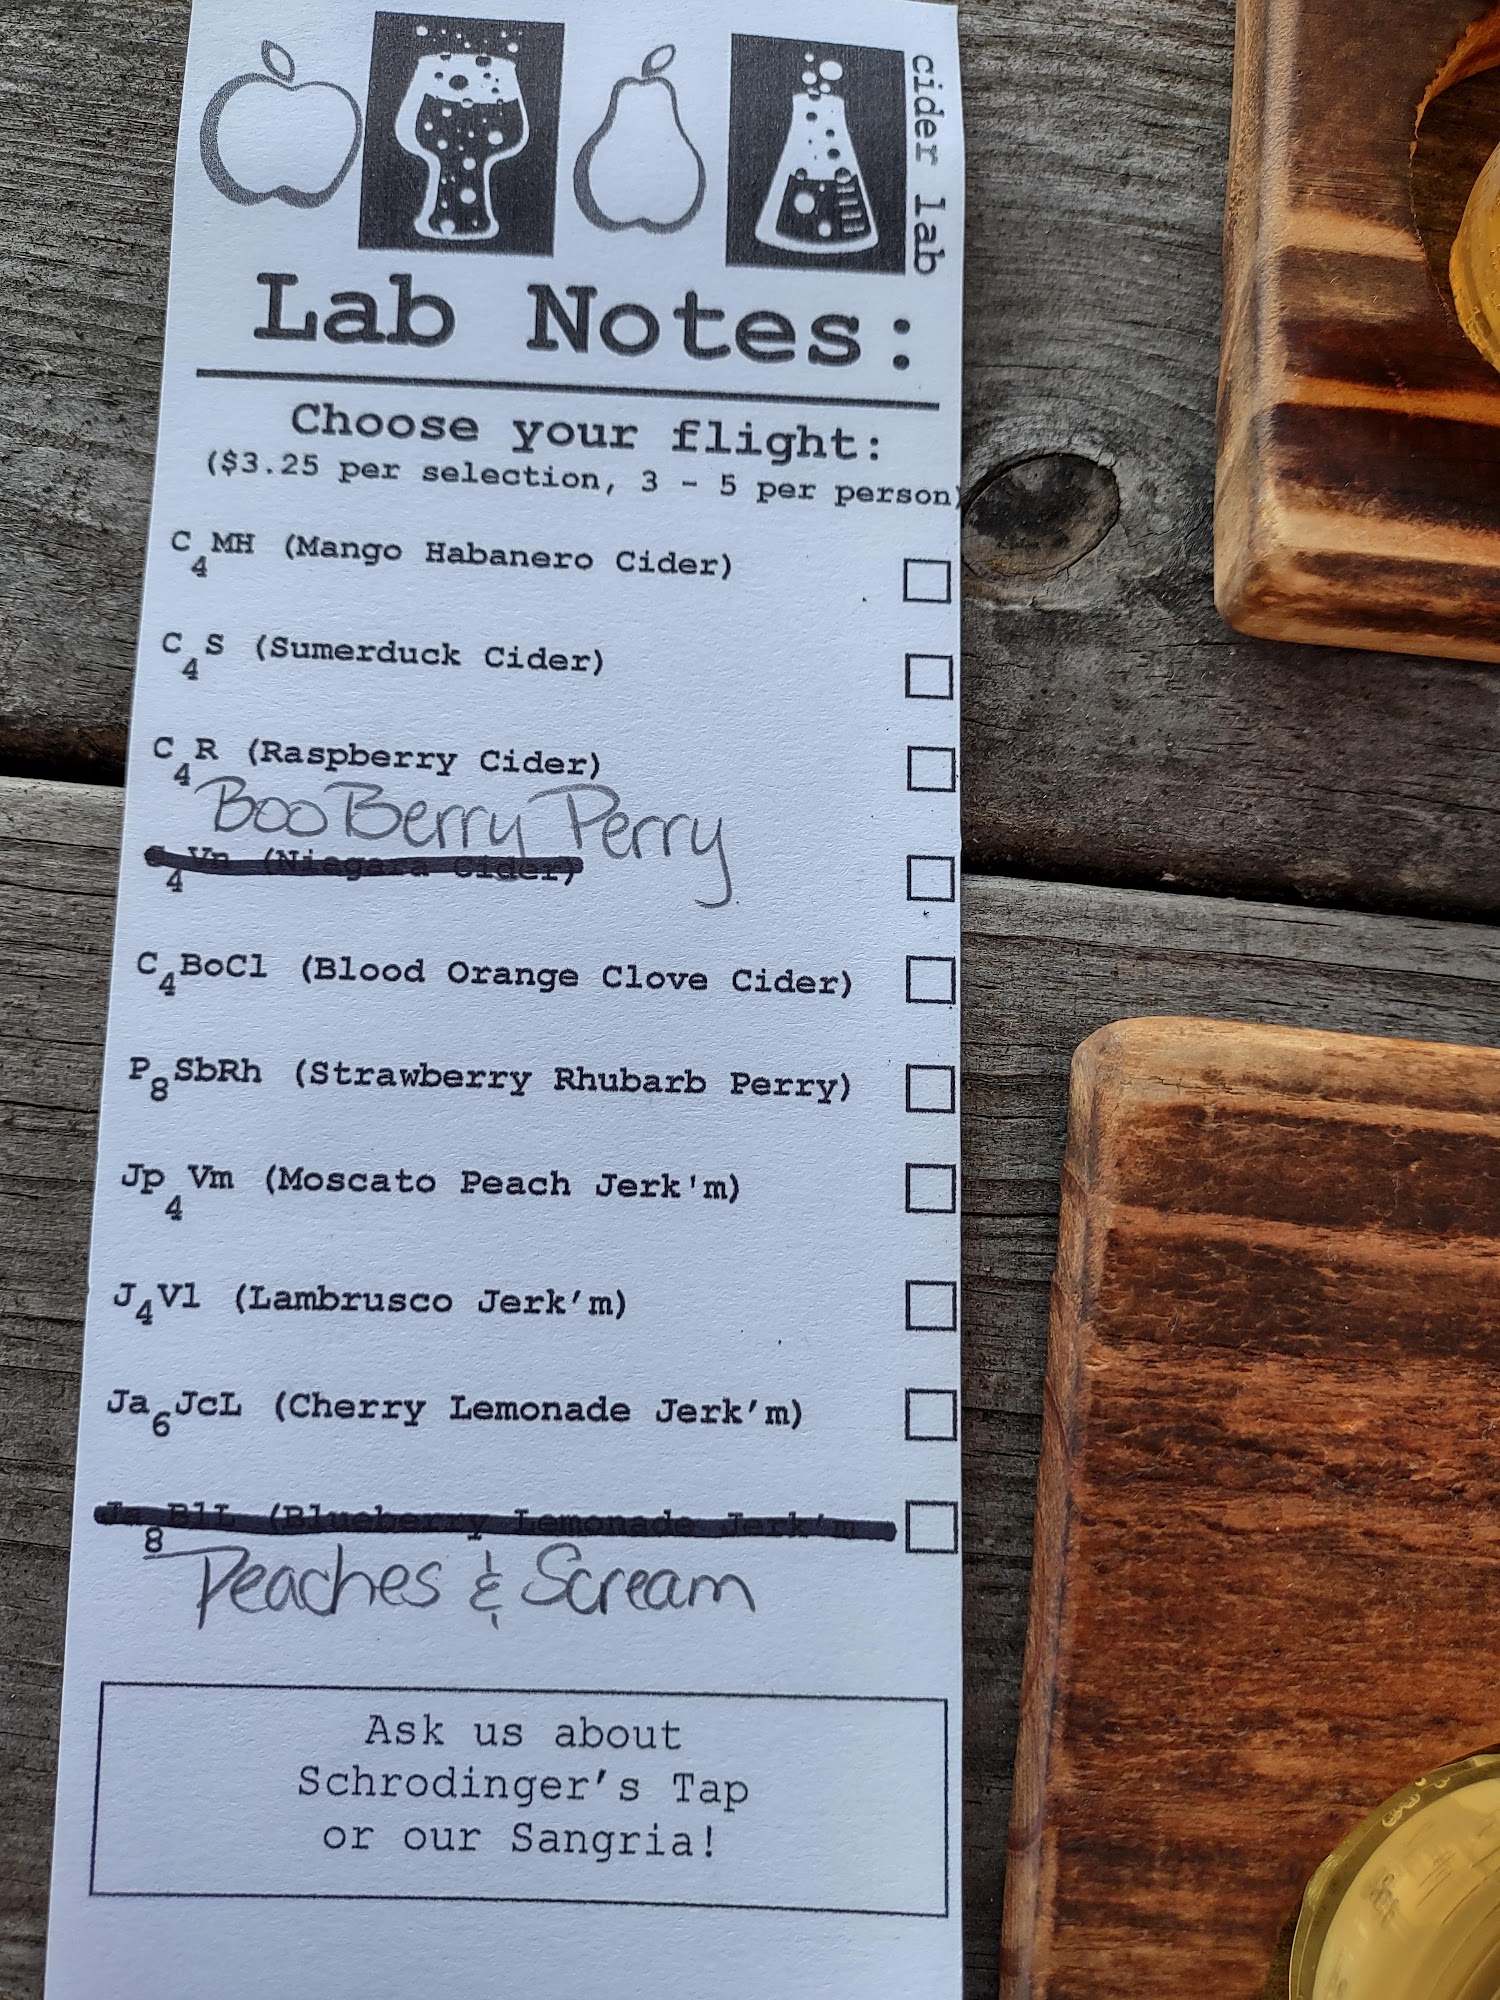 cider lab
Lab Notes:
Choose your flight:
($3.25 per selection, 3 - 5 per person)
C4MH (Mango Habanero Cider)
C4S (Sumerduck Cider)
C4R (Raspberry Cider)
BooBerry Perry
C4Vn (Niagara Cider)
C4BoCl (Blood Orange Clove Cider)
P8SbRh (Strawberry Rhubarb Perry)
Jp4Vm (Moscato Peach Jerk'm)
J4Vl (Lambrusco Jerk’m)
Ja6JcL (Cherry Lemonade Jerk’m)
Ja8BlL (Blueberry Lemonade Jerk’m
Peaches & Scream
Ask us about
Schrodinger’s Tap
or our Sangria!